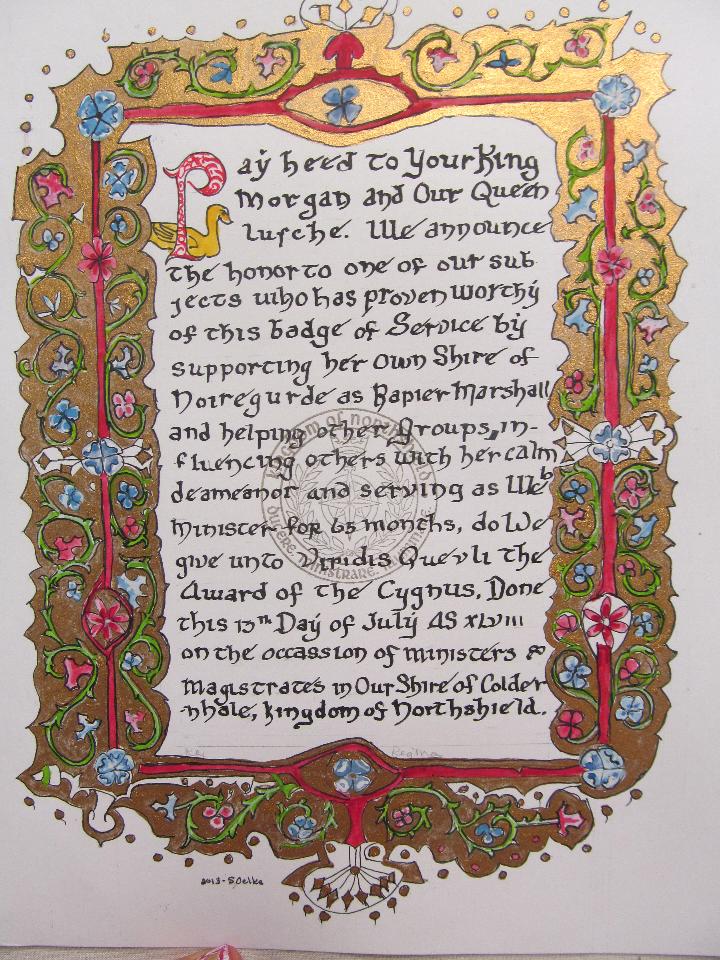 Pay heed to Your King
Morgan and Our Queen
Lusche. We announce
the honor to one of our sub
jects who has proven worthy
of this badge of Service by
supporting her own Shire of
Noiregurde as Rapier Marshall
and helping other Groups, in-
fluencing others with her calm
deameanor and serving as Web
Minister for 65 months, do We
give unto Viridis Quevli the
Award of the Cygnus, Done
this 13th Day of July AS XLVIII
on the occassion of ministers &
Magistrates in Our Shire of Colder
nhole, Kingdom of Northshield.
Rex Regina
2013 - S. Oelke